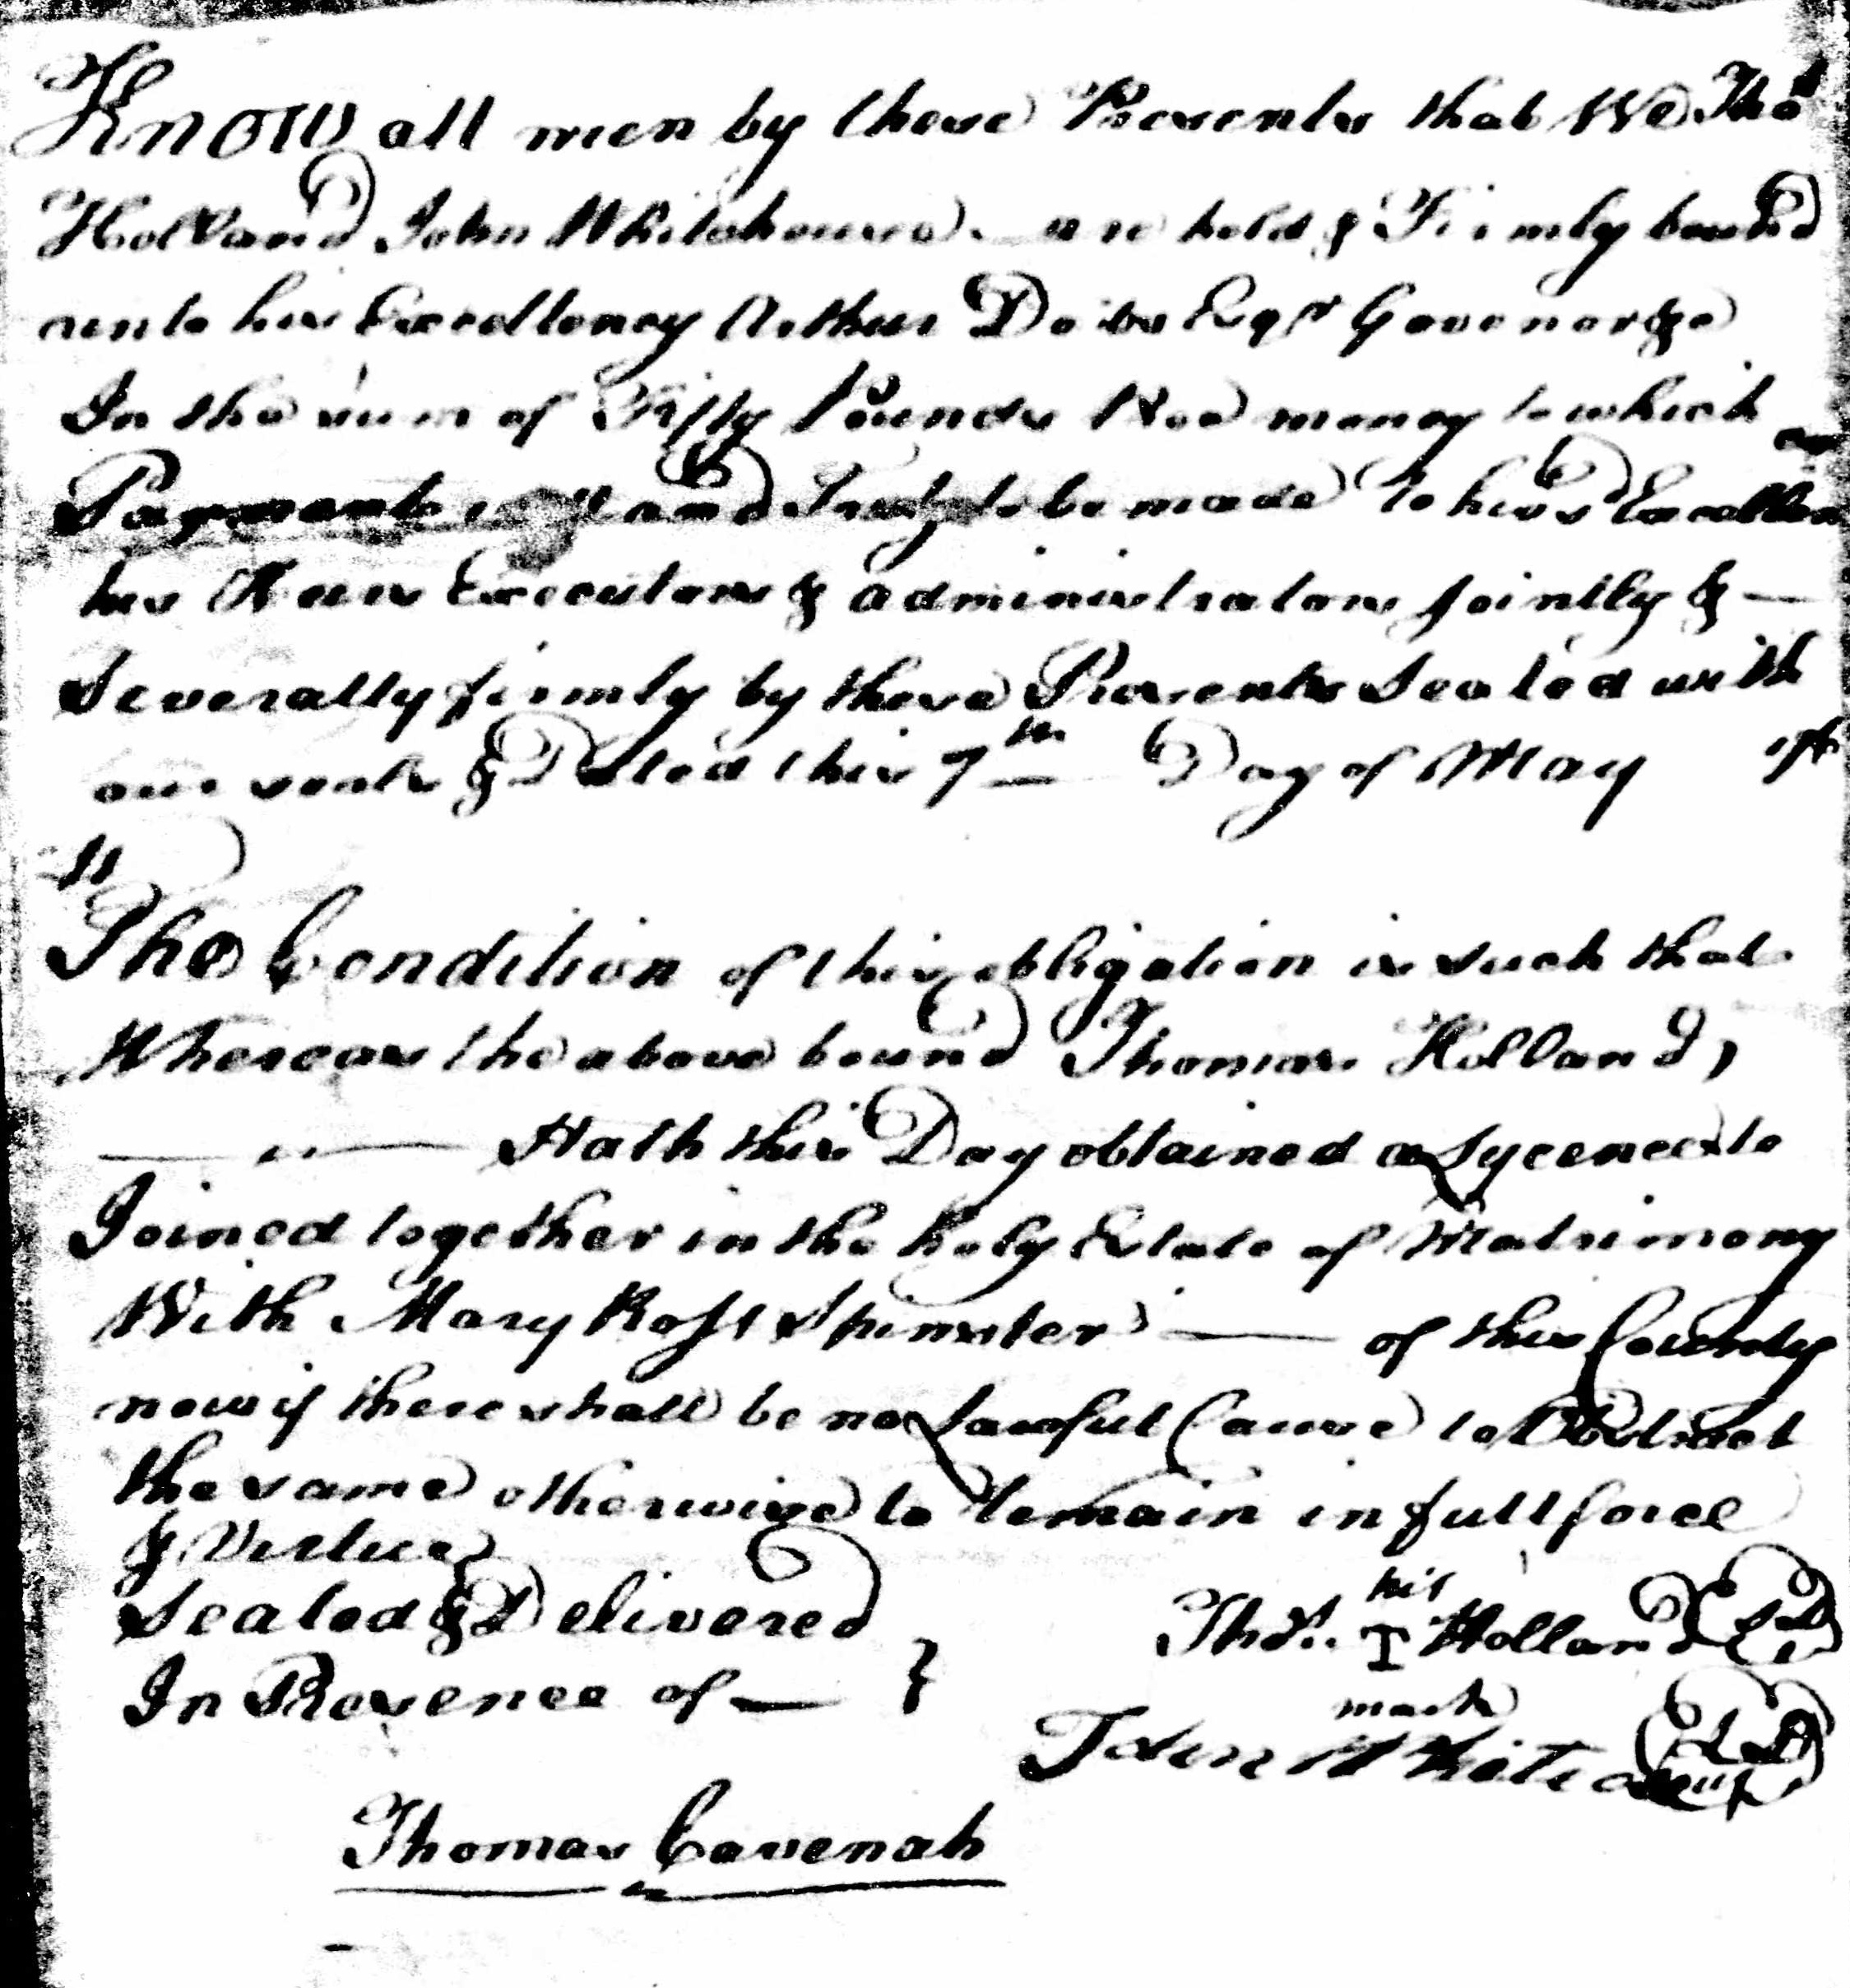 Know all men by these Presents that We Thos
Holland John Whitehouse. are held & Firmly bound
unto his Excellency Arthur Dobs Esqr Govenor &c
In the sum of Fifty Pounds Proc money to which
Payment well and Truly to be made to his sd Excellen
his Heirs Executors & administrators Jointly & —
Severally firmly by these Presents Sealed with
our seals & Dated this 7th Day of May
The Condition of this obligation is such that
Whereas the above bound Thomas Holland,
Hath this Day obtained a Lycence to
Joined together in the holy Estate of Matrimony
With Mary Ross Spinster — of this County
now if there shall be no Lawful Cause to Obstruct
the same otherwise to Remain in full force
& Virtue
Sealed & Delivered
In Presence of — }
Thos. his T mark Holland
John Whitehouse
Thomas Cavenah